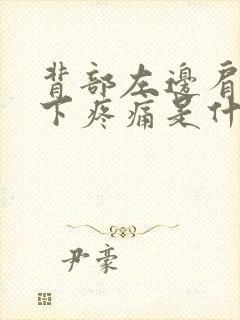 背部左邊肩
下疼痛是什
尹豪